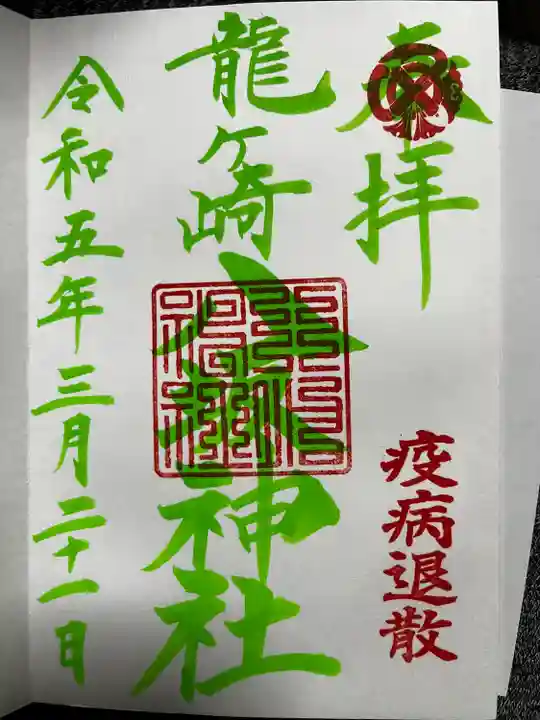 奉拝
疫病退散
龍ヶ崎八坂神社
令和五年三月二十一日